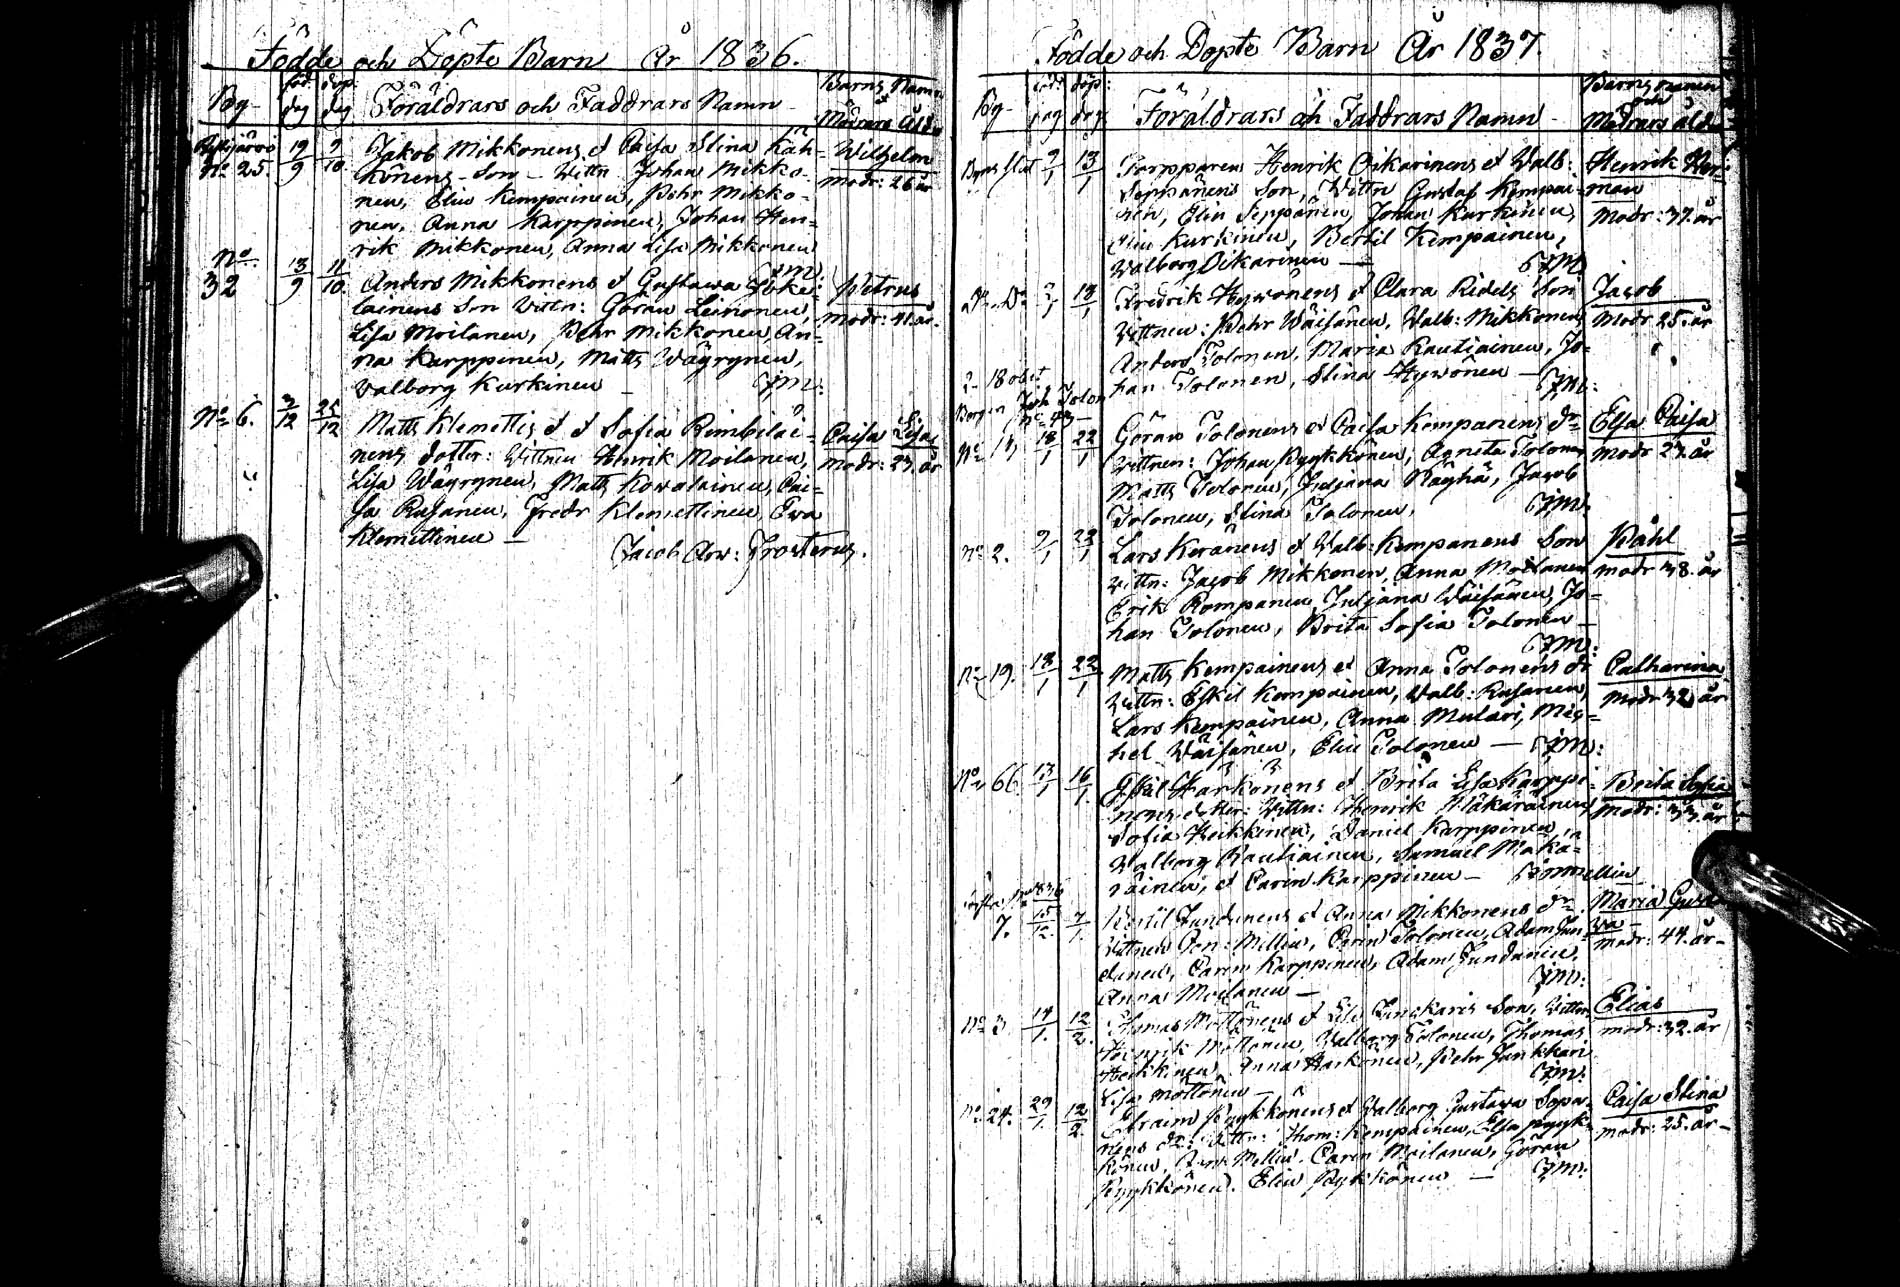 Födde och Döpte Barn År 1836.
By
föd. dag
döp. dag
Föräldrars och Faddrars Namn
Barns Namn
Mödrars Ålder
No 25.
19/9
9/10
Jakob Mikkonens et Caisa Stina Käh=
könens Son - Wittn Johan Mikko-
nen, Elin Kempainen, Pehr Mikko-
nen, Anna Karppinen, Johan Hen=
rik Mikkonen, Anna Lisa Mikkonen
Wilhelm
Modr: 26 år
No
32
13/9
11/10
Anders Mikkonens et Gustawa
lainens Son Wittn: Göran Leinonen,
Lisa Moilanen, Pehr Mikkonen, An=
na Karppinen, Matts Wäyrynen,
Valborg Kurkinen
Petrus
modr: 41. år.
No 6.
3/12
25/12
Matts Klemettis et Sofia Rimbiläi=
nens dotter: Wittnen Henrik Moilanen,
Lisa Wäyrynen, Matts Kowalainen, Cai=
sa Rusanen, Fredr Klemettinen, Ewa
Klemettinen —
Caisa Lisa
modr: 23. år
Jacob Arw: Frosterus.
Födde och Dopte Barn År 1837.
By
föd: dag
döp: dag
Föräldrars och Faddrars Namn
Barns namn
och
Mödrars ålder
13/1
Henrik Oikarinens et Walb:
Seppänens Son, Wittn Gustaf Kempai=
nen, Elin Seppänen, Johan Kurkinen,
Elin Kurkinen, Bertil Kempainen,
Walborg Oikarinen —
Henrik Her=
man
Modr: 37. år
Do Do
13/1
Fredrik Hywönens et Clara Ridels Son
Wittnen: Pehr Wäisänen, Walb: Mikkonen,
Anders Tolonen, Maria Rautiainen, Jo=
han Tolonen, Stina Hywönen —
Jacob
Modr 25. år
18/1
22/1
Göran Tolonens et Caisa Kempanens dr
Wittnen: Johan Pyykkönen, Agneta Tolonen
Matts Tolonen, Juljana Räyhä, Jacob
Tolonen, Stina Tolonen.
Elsa Caisa
modr 27. år
No 2.
9/1
22/1
Lars Keränens et Walb: Kempanens Son
Wittn: Jacob Mikkonen, Anna Moilanen
Erik Kompanen, Juljana Wäisänen, Jo=
han Tolonen, Brita Sofia Tolonen —
Påhl
modr 38. år
No 19.
18/1
22/1
Matts Kempainens et Anna Tolonens dr
Wittn: Eskil Kempainen, Walb: Rusanen,
Lars Kempainen, Anna Mulari, Mic=
hel Wäisänen, Elin Tolonen —
Catharina
modr 32 år
No 66
13/1
16/1
Eskil Härkönens et Brita Lisa Karppi=
nens dotter: Wittn: Henrik Mäkäräinen,
Sofia Heikkinen, Daniel Karppinen,
Walborg Rautiainen, Samuel Mäkä=
räinen, et Carin Karppinen —
Brita Sofia
modr: 33. år
7.
15/12
Bertil Jundunens et Anna Mikkonens dr
Wittnen Mellin, Carin Tolonen, Adam Jun=
dunen, Caren Karppinen, Adam Jundunen,
Anna Moilanen —
Maria Gusta
wa
modr: 44. år -
No 3
14/1
12/2
Thomas Möttönens et Lisa Junkaris Son, Wittn
Henrik Möttönen, Valborg Tolonen, Thomas
Heikkinen, Anna Härkönen, Pehr Junkkari
Lisa Möttönen —
Elias
modr: 32. år
No 24.
29/1
12/2
Efraim Pyykkönens et Valborg Gustawa Sopa=
nens dr: Wittn: Thom: Kempainen, Elsa Pyyk=
könen, Mellin, Caren Moilanen, Göran
Pyykkönen. Elin Pyykkönen —
Caisa Stina
modr: 25. år -